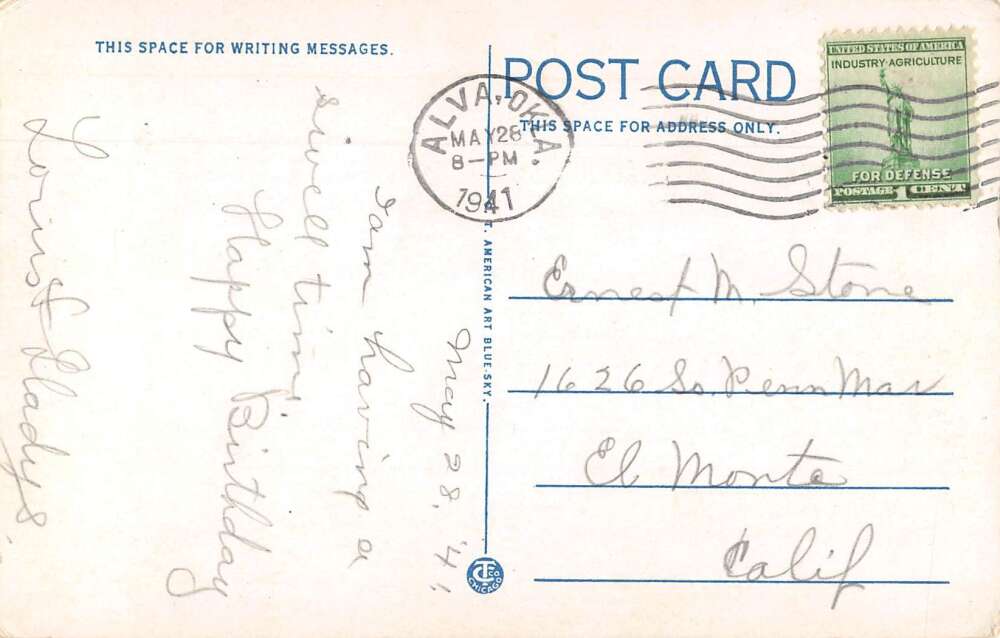 THIS SPACE FOR WRITING MESSAGES.
May 28, '41
I am having a
swell time
Happy Birthday
Loris & Gladys.
POST CARD
THIS SPACE FOR ADDRESS ONLY.
ALVA, OKLA.
MAY 28
8-PM
1941
UNITED STATES OF AMERICA
INDUSTRY·AGRICULTURE
FOR DEFENSE
POSTAGE 1 CENT
T. AMERICAN ART BLUE-SKY.
Ernest M. Stone
1626 So. Penn Mar
El Monte
Calif
CT CO
CHICAGO